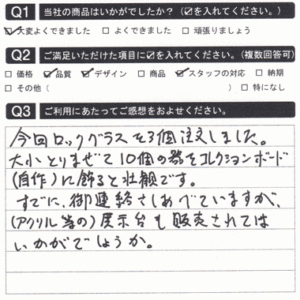 Q1 当社の商品はいかがでしたか？（☑を入れてください。）
☑大変よくできました □よくできました □頑張りましょう
Q2 ご満足いただけた項目に☑を入れてください。（複数回答可）
□価格 ☑品質 ☑デザイン □商品 ☑スタッフの対応 □納期
□その他（ ） □特になし
Q3 ご利用にあたってご感想をおよせください。
今回ロックグラスを3個注文しました。
大小とりまぜて10個の器をコレクションボード
(自作)に飾ると壮観です。
すでに、御連絡さしあげていますが、
(アクリル等の)展示台も販売されては
いかがでしょうか。